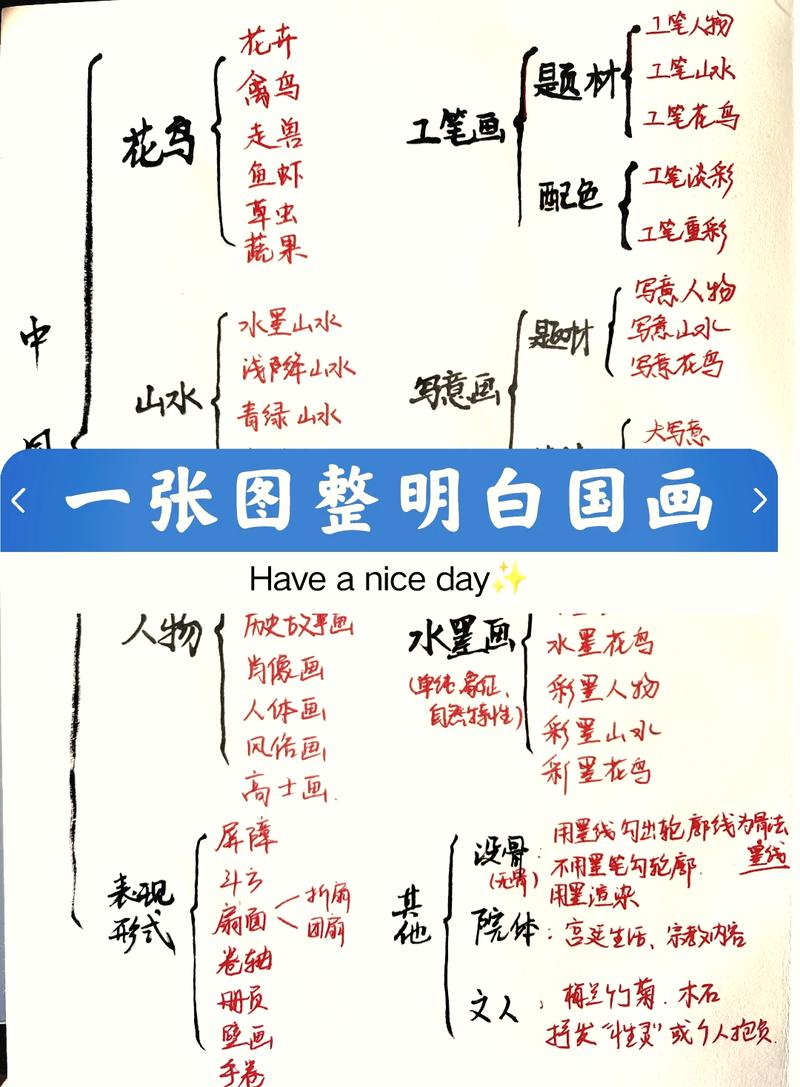 中
国
花鸟
花卉
禽鸟
走兽
鱼虾
草虫
蔬果
山水
水墨山水
浅降山水
青绿山水
工笔画
题材
工笔人物
工笔山水
工笔花鸟
配色
工笔淡彩
工笔重彩
写意画
题材
写意人物
写意山水
写意花鸟
大写意
一张图整明白国画
Have a nice day✨
人物
历史故事画
肖像画
人体画
风俗画
高士画.
表现
形式
屏障
斗方
扇面
折扇
团扇
卷轴
册页
壁画
手卷
水墨画
(单纯、象征、
自然特性)
水墨花鸟
彩墨人物
彩墨山水
彩墨花鸟
其他
没骨:
(无骨)
用墨线勾出轮廓线为骨法
墨线
不用墨笔勾轮廓.
用墨渲染
院体: 宫廷生活、宗教内容
文人、梅兰竹菊.木石
抒发“性灵”或个人抱负.